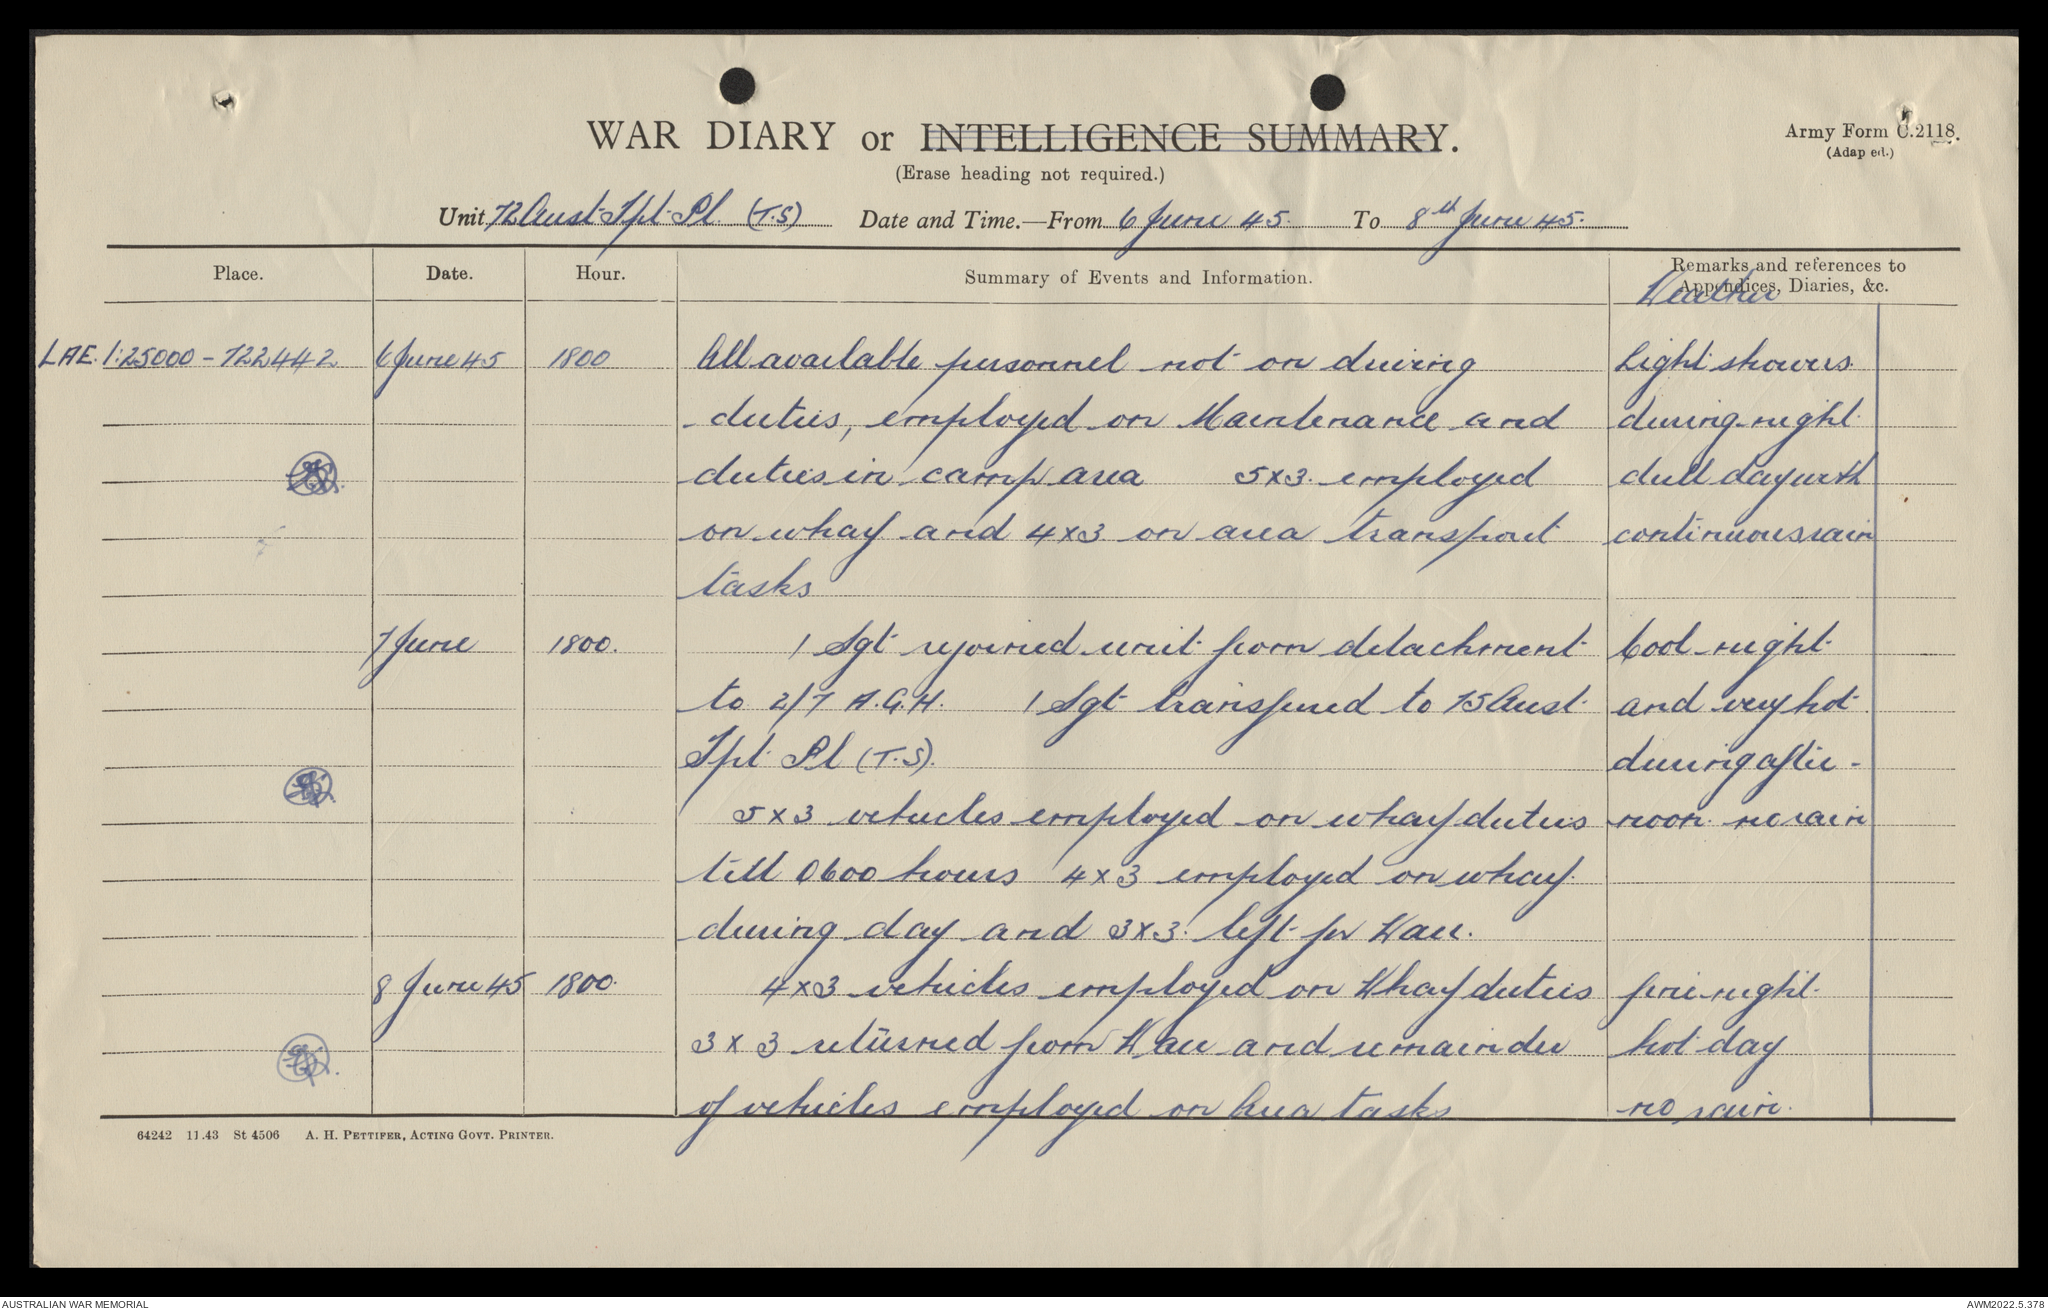 WAR DIARY or INTELLIGENCE SUMMARY.
(Erase heading not required.)
Army Form C.2118.
(Adapted.)
Unit 72 Aust Tpt. Pl. (T.S) Date and Time.—From 6 June 45. To 8th June 45.
Place. Date. Hour. Summary of Events and Information. Remarks and references to
Appendices, Diaries, &c.
Weather
LAE. 1:25000 - 722442 6 June 45 1800 All available personnel not on driving Light showers.
duties, employed on Maintenance and during night
duties in camp area 5x3. employed dull day with
on wharf and 4x3 on area transport continuous rain
tasks
7 June 1800. 1 Sgt rejoined unit from detachment Cool night
to 2/7 A.G.H. 1 Sgt transferred to 75 Aust. and very hot
Tpt. Pl (T.S). during after-
5x3 vehicles employed on wharf duties noon. no rain
till 0600 hours 4x3 employed on wharf.
during day and 3x3. left for Wau.
8 June 45 1800. 4x3 vehicles employed on Wharf duties fine night.
3x3 returned from Wau and remainder hot day
of vehicles employed on Area tasks no rain.
64242 11.43 St 4506 A. H. PETTIFER, ACTING GOVT. PRINTER.
AUSTRALIAN WAR MEMORIAL
AWM2022.5.378